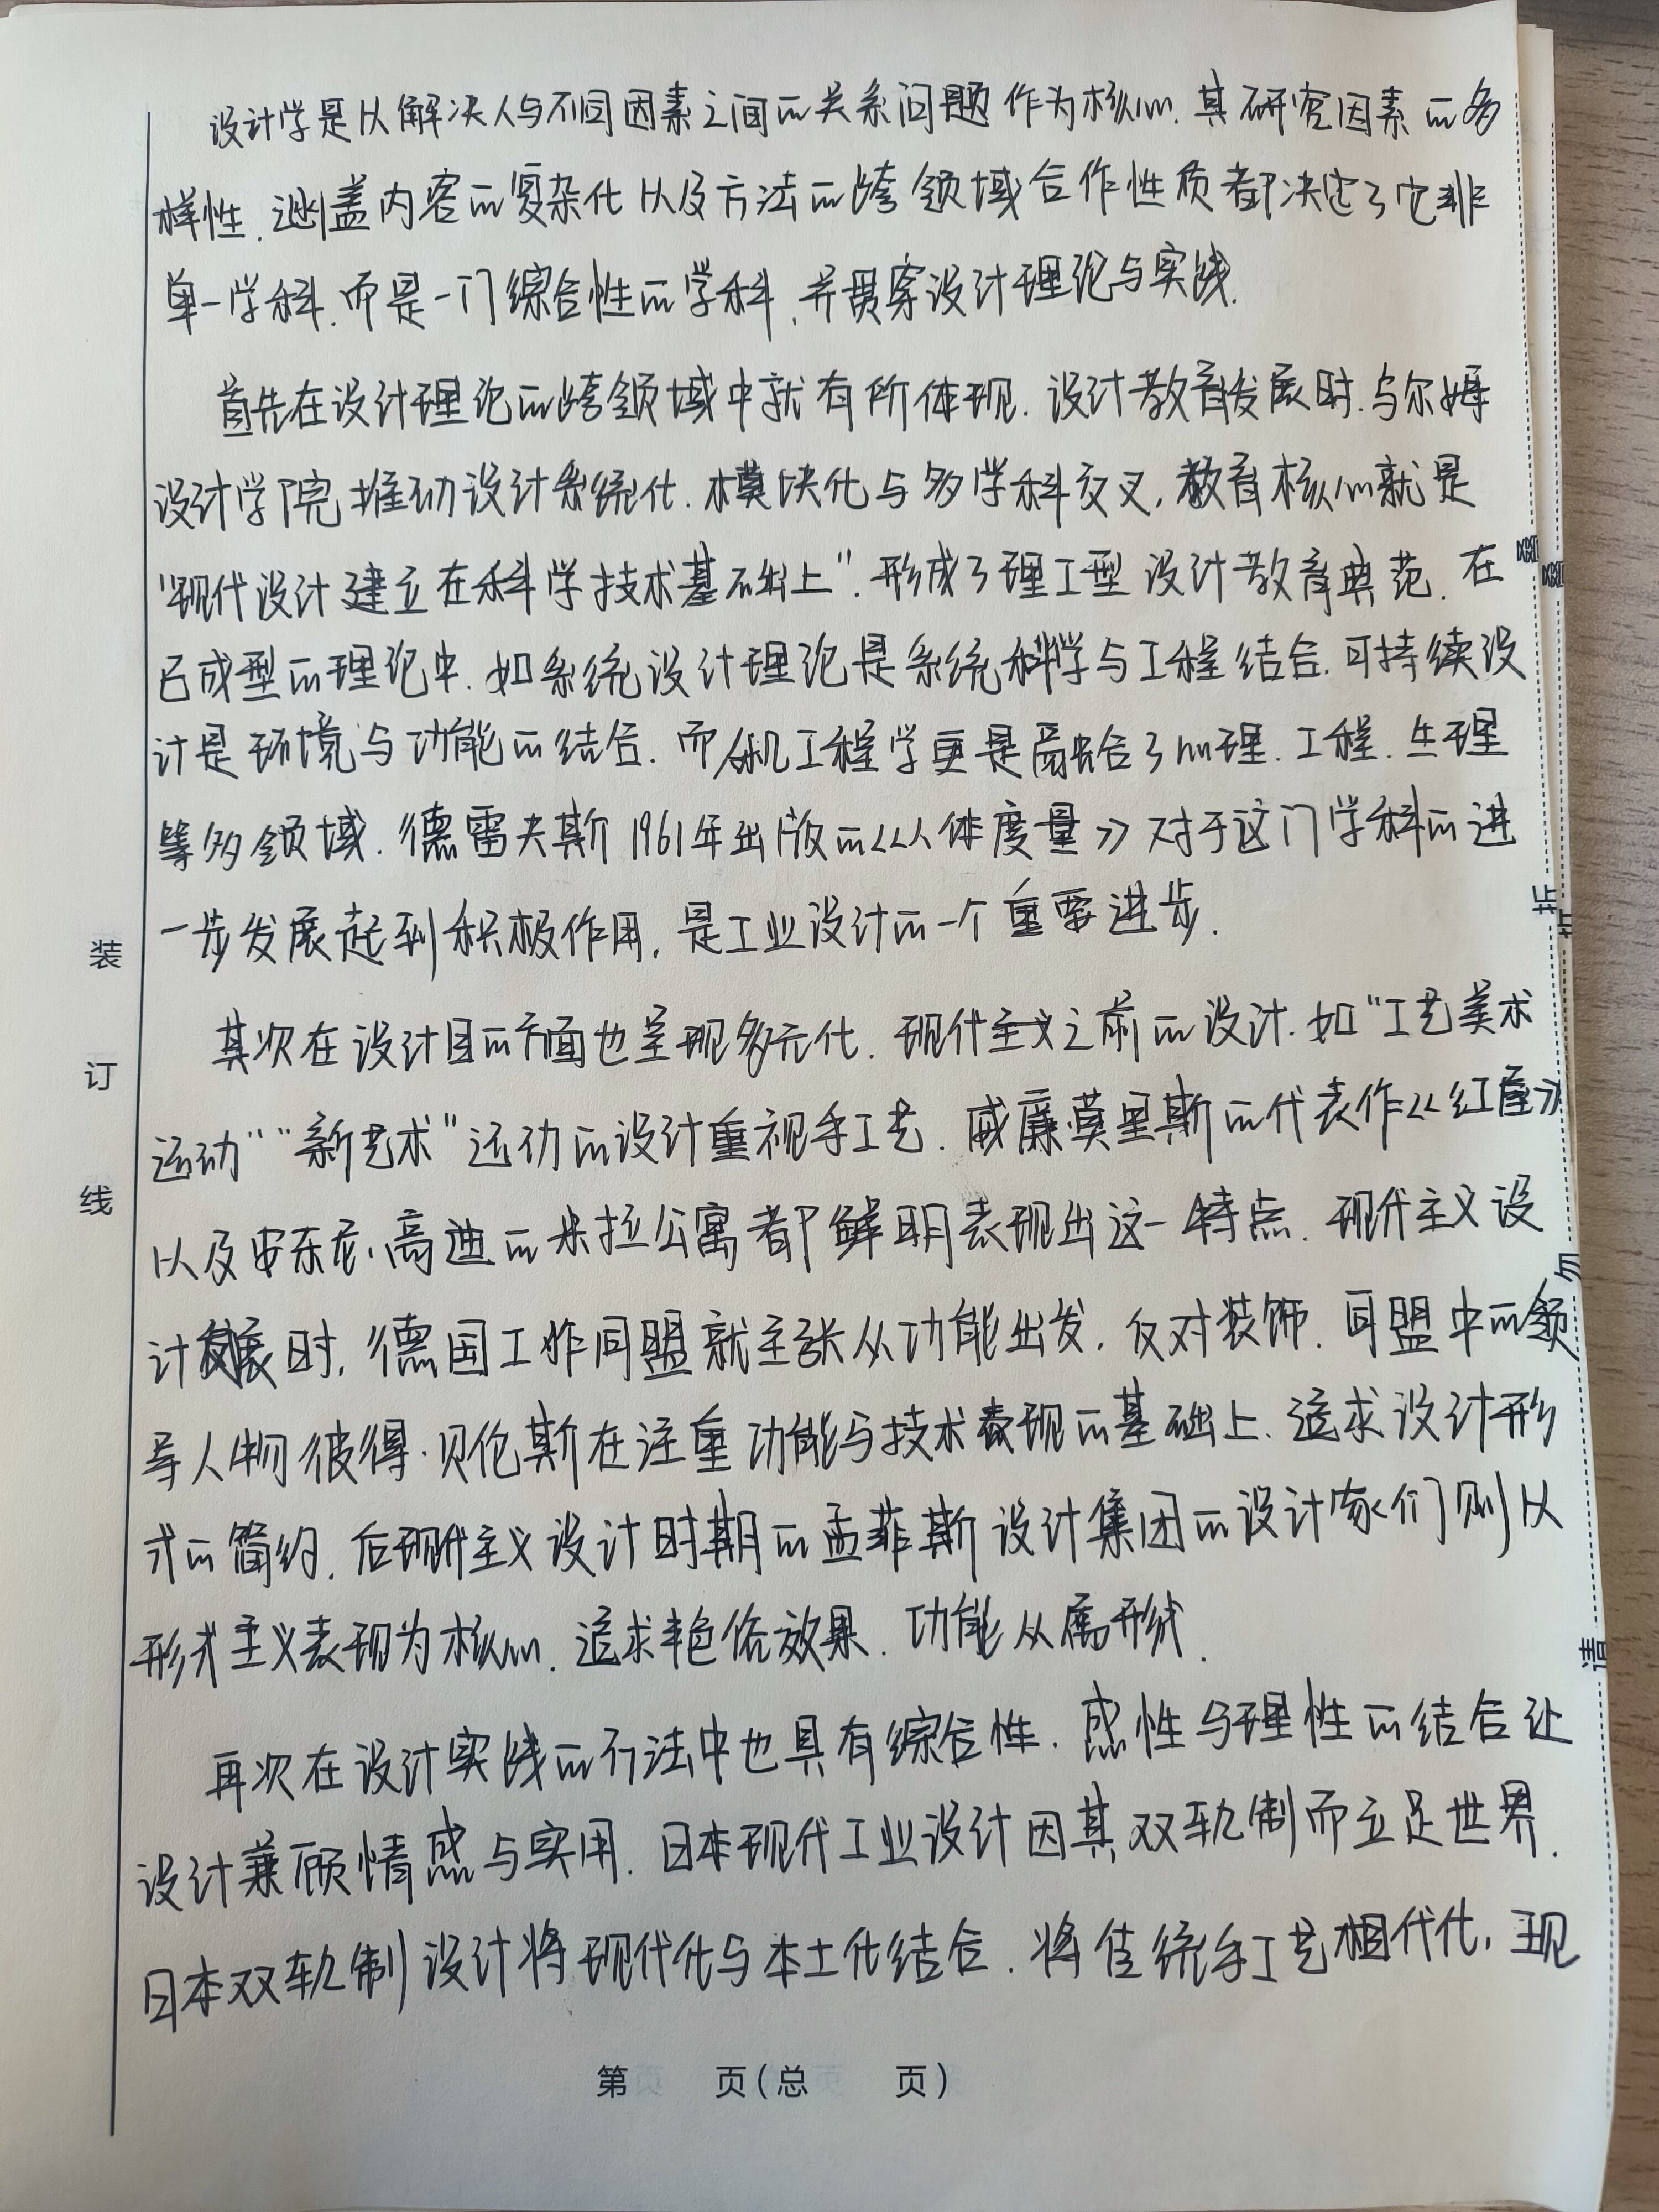 设计学是以解决人与不同因素之间的关系问题作为核心.其研究因素的多
样性.涵盖内容的复杂化以及方法的跨领域合作性质都决定了它非
单一学科.而是一门综合性的学科,并贯穿设计理论与实践.
首先在设计理论的跨领域中就有所体现.设计教育发展时.乌尔姆
设计学院推动设计系统化.模块化与多学科交叉,教育核心就是
"现代设计建立在科学技术基础上".形成了理工型设计教育典范.在
已成型的理论中.如系统设计理论是系统科学与工程结合.可持续设
计是环境与功能的结合.而人机工程学更是融合了心理.工程.生理
等多领域.德雷夫斯1961年出版的《人体度量》对于这门学科的进
一步发展起到积极作用,是工业设计的一个重要进步.
其次在设计目的方面也呈现多元化.现代主义之前的设计.如"工艺美术
运动""新艺术"运动的设计重视手工艺.威廉莫里斯的代表作《红屋》
以及安东尼·高迪的米拉公寓都鲜明表现出这一特点.现代主义设
计发展时,德国工作同盟就主张从功能出发,反对装饰.同盟中的领
导人物彼得·贝伦斯在注重功能与技术表现的基础上.追求设计形
式的简约.后现代主义设计时期的孟菲斯设计集团的设计家们则以
形式主义表现为核心.追求艳俗效果.功能从属形式.
再次在设计实践的方法中也具有综合性.感性与理性的结合让
设计兼顾情感与实用.日本现代工业设计因其双轨制而立足世界.
日本双轨制设计将现代化与本土化结合.将传统手工艺现代化,现
第 页(总 页)
装
订
线
叠
叠
折
折
勿
请